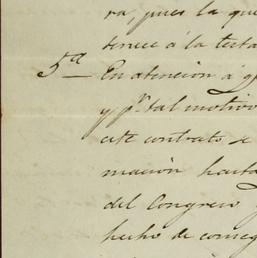 ra, pues la que
tenece á la testa
5ª En atencion á q
y pr. tal motivo
este contrato e
macion hasta
del Congreso y
hecho de conseg